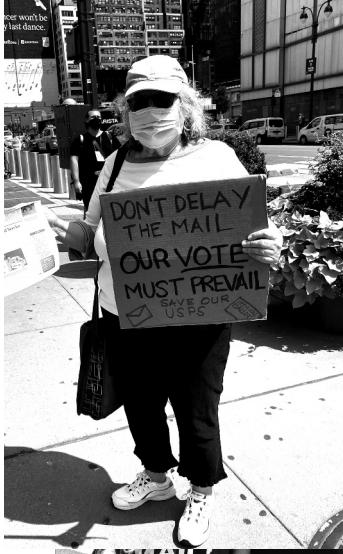 ncer won't be
y last dance.
DON'T DELAY
THE MAIL
OUR VOTE
MUST PREVAIL
SAVE OUR
USPS